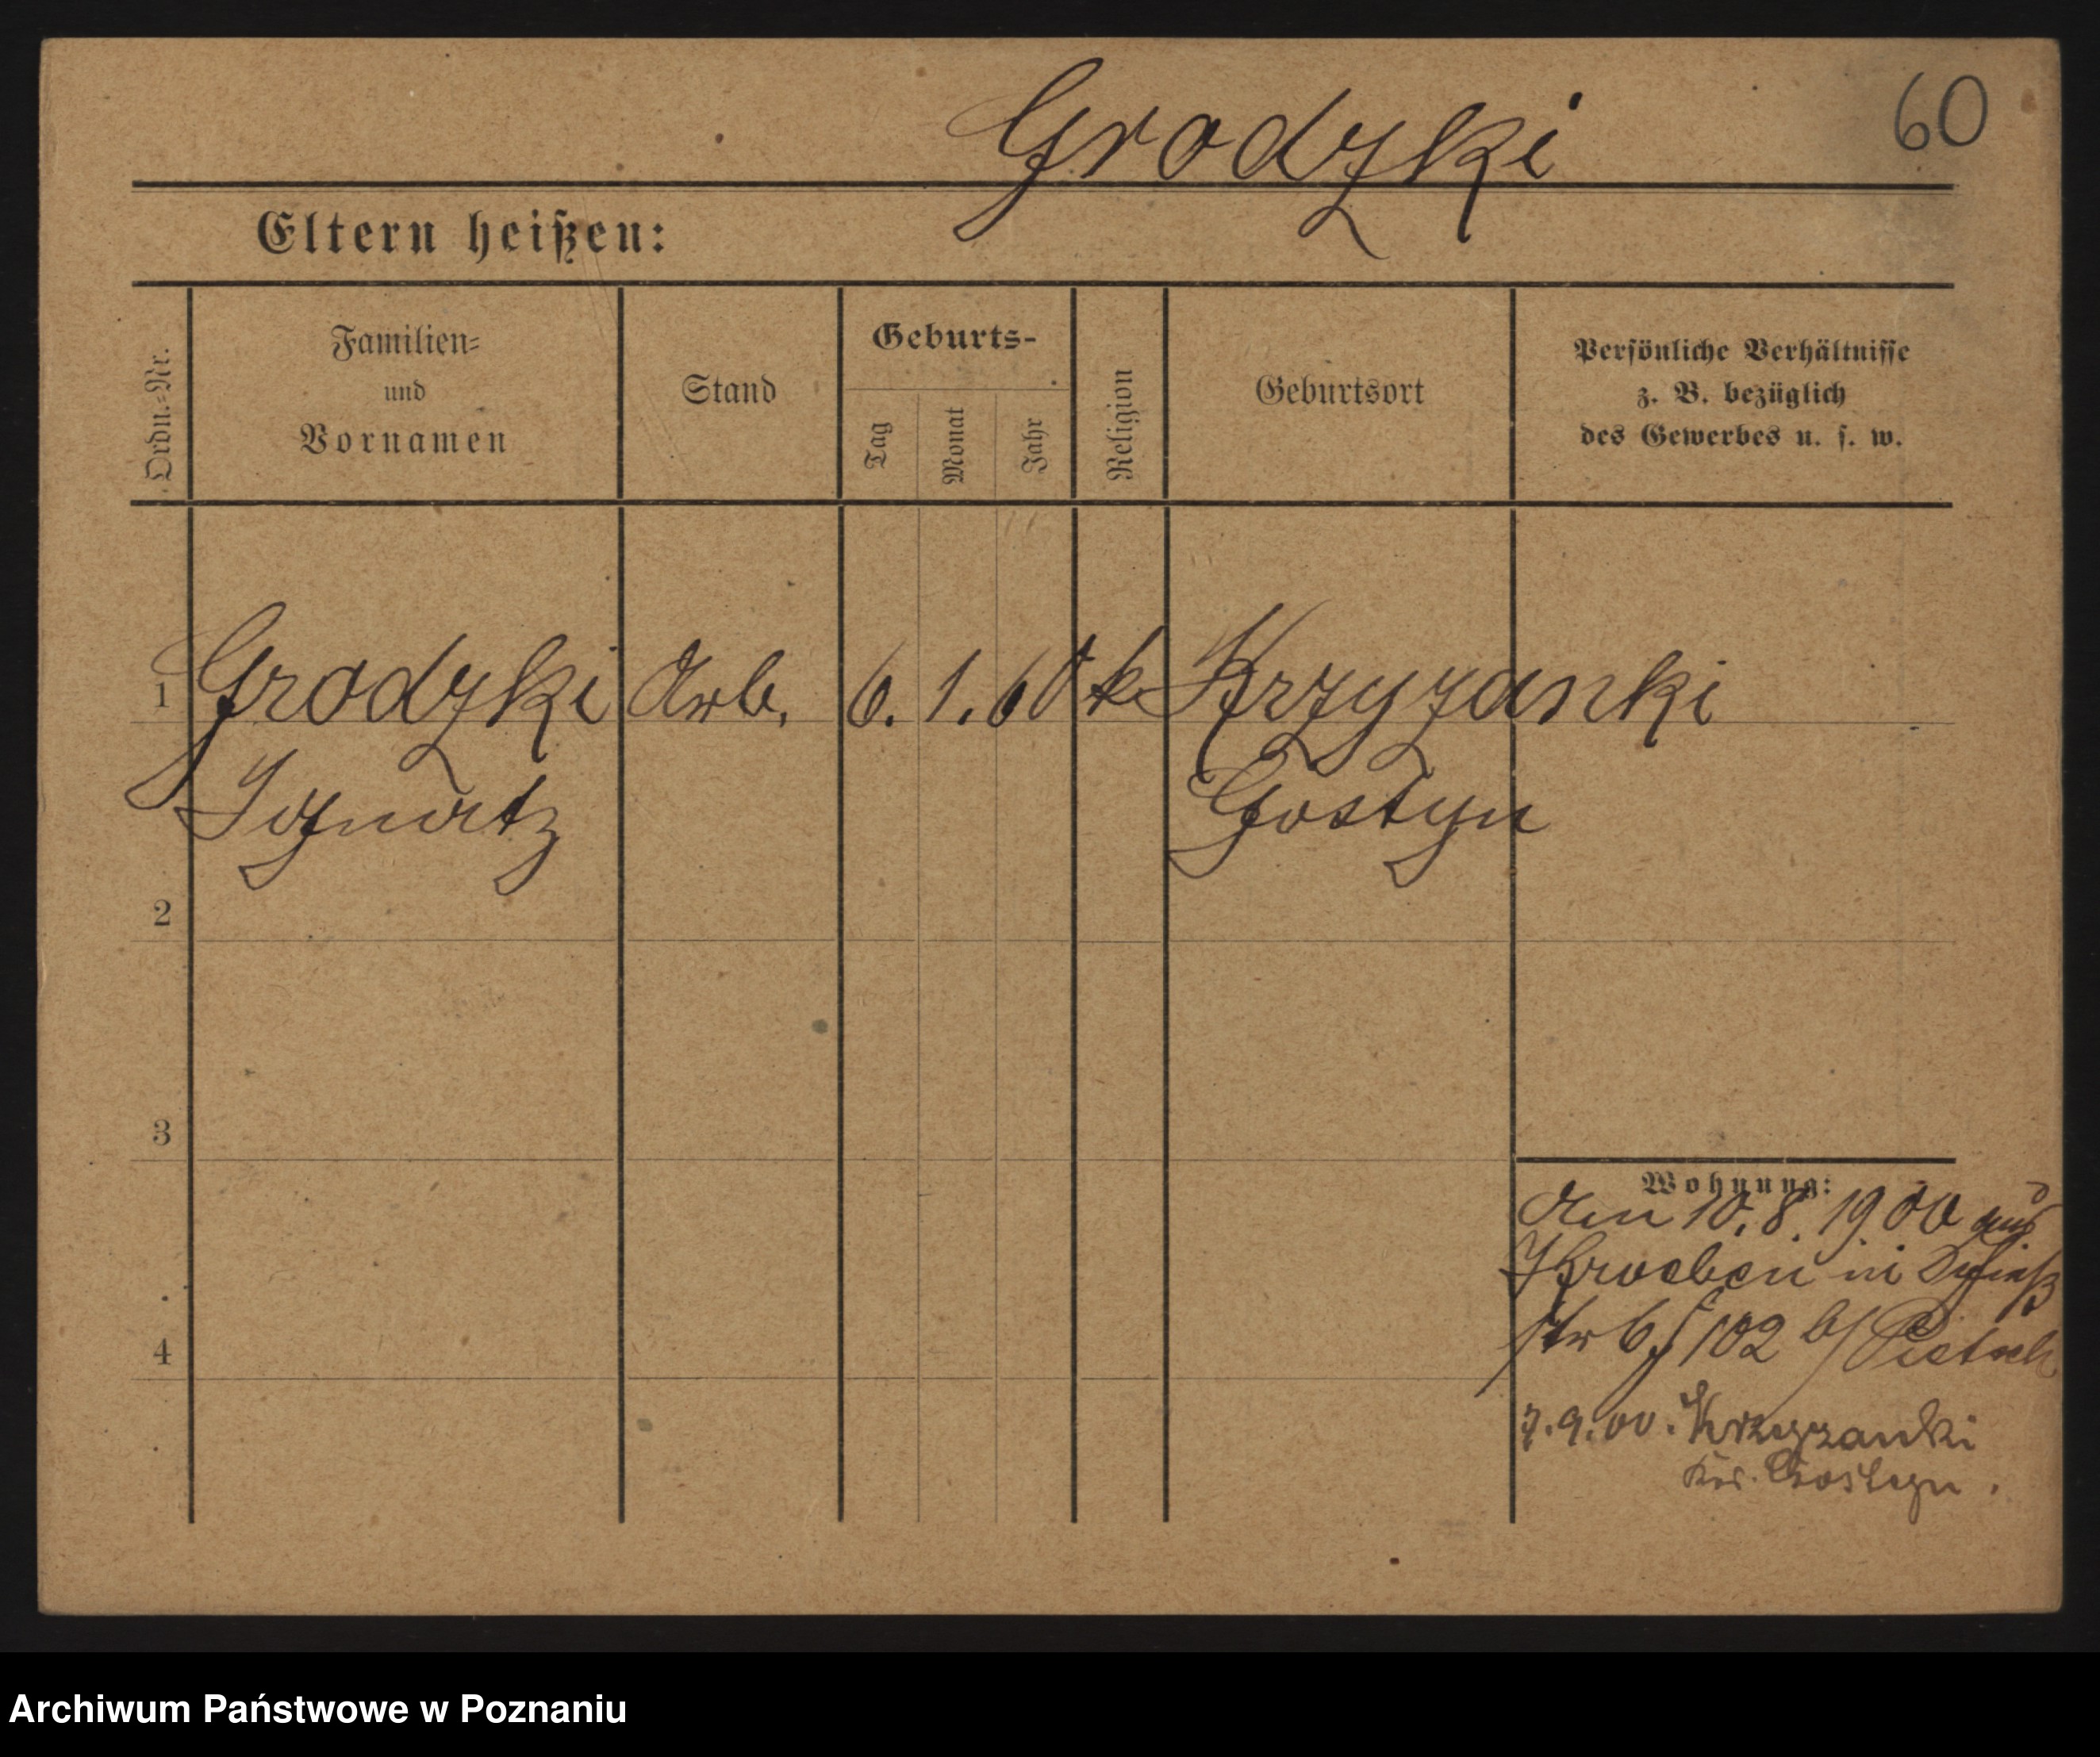 Grodzki
60
Eltern heißen:
Ordn.-Nr.
Familien-
und
Vornamen
Stand
Geburts-
Tag
Monat
Jahr
Religion
Geburtsort
Persönliche Verhältnisse
z. B. bezüglich
des Gewerbes u. s. w.
1
Grodzki
Arb.
6. 1. 60
k
Krzyzanki
Ignatz
Gostyn
2
3
4
Wohnung:
Am 10. 8. 1900 aus
Kroeben in
102 b/ Pietsch
7.9.00. Krzyzanki
Krs. Gostyn.
Archiwum Państwowe w Poznaniu